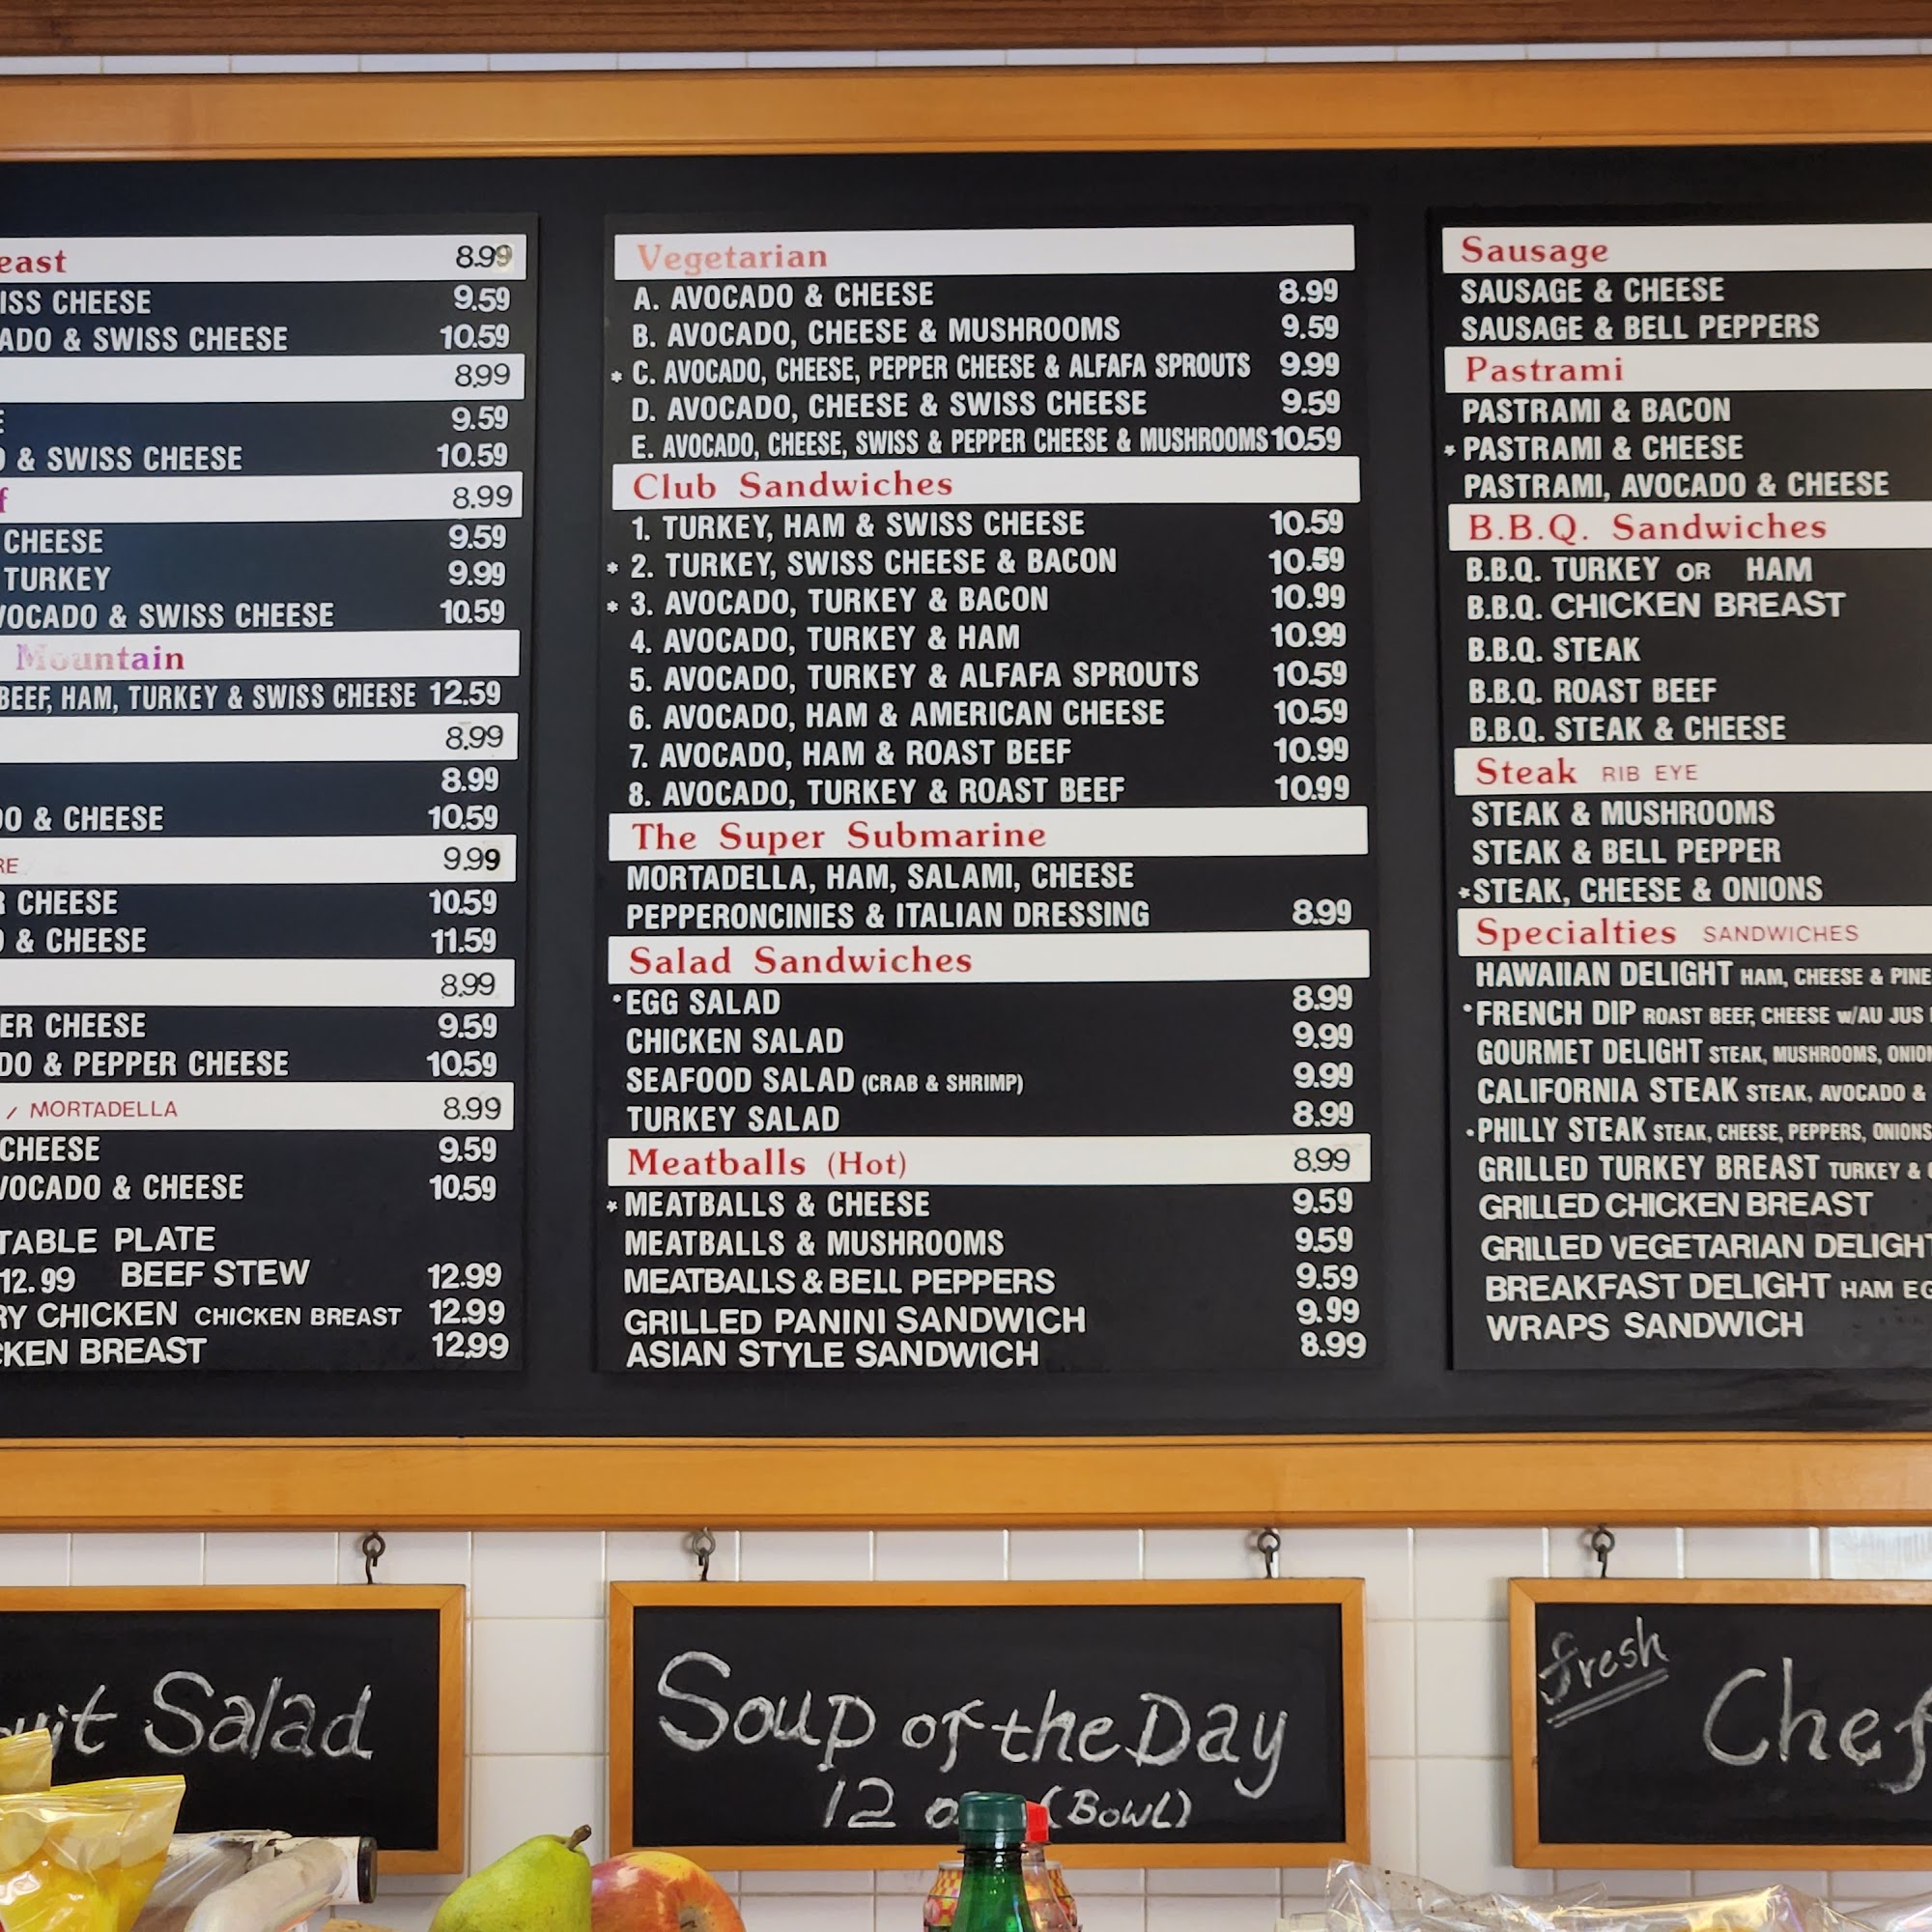 east 8.99
ISS CHEESE 9.59
ADO & SWISS CHEESE 10.59
8.99
9.59
& SWISS CHEESE 10.59
f 8.99
CHEESE 9.59
TURKEY 9.99
VOCADO & SWISS CHEESE 10.59
Mountain
BEEF, HAM, TURKEY & SWISS CHEESE 12.59
8.99
8.99
DO & CHEESE 10.59
RE 9.99
R CHEESE 10.59
& CHEESE 11.59
8.99
ER CHEESE 9.59
DO & PEPPER CHEESE 10.59
/ MORTADELLA 8.99
CHEESE 9.59
VOCADO & CHEESE 10.59
TABLE PLATE
12.99 BEEF STEW 12.99
RY CHICKEN CHICKEN BREAST 12.99
CKEN BREAST 12.99
Vegetarian
A. AVOCADO & CHEESE 8.99
B. AVOCADO, CHEESE & MUSHROOMS 9.59
* C. AVOCADO, CHEESE, PEPPER CHEESE & ALFAFA SPROUTS 9.99
D. AVOCADO, CHEESE & SWISS CHEESE 9.59
E. AVOCADO, CHEESE, SWISS & PEPPER CHEESE & MUSHROOMS 10.59
Club Sandwiches
1. TURKEY, HAM & SWISS CHEESE 10.59
* 2. TURKEY, SWISS CHEESE & BACON 10.59
* 3. AVOCADO, TURKEY & BACON 10.99
4. AVOCADO, TURKEY & HAM 10.99
5. AVOCADO, TURKEY & ALFAFA SPROUTS 10.59
6. AVOCADO, HAM & AMERICAN CHEESE 10.59
7. AVOCADO, HAM & ROAST BEEF 10.99
8. AVOCADO, TURKEY & ROAST BEEF 10.99
The Super Submarine
MORTADELLA, HAM, SALAMI, CHEESE
PEPPERONCINIES & ITALIAN DRESSING 8.99
Salad Sandwiches
* EGG SALAD 8.99
CHICKEN SALAD 9.99
SEAFOOD SALAD (CRAB & SHRIMP) 9.99
TURKEY SALAD 8.99
Meatballs (Hot) 8.99
* MEATBALLS & CHEESE 9.59
MEATBALLS & MUSHROOMS 9.59
MEATBALLS & BELL PEPPERS 9.59
GRILLED PANINI SANDWICH 9.99
ASIAN STYLE SANDWICH 8.99
Sausage
SAUSAGE & CHEESE
SAUSAGE & BELL PEPPERS
Pastrami
PASTRAMI & BACON
* PASTRAMI & CHEESE
PASTRAMI, AVOCADO & CHEESE
B.B.Q. Sandwiches
B.B.Q. TURKEY OR HAM
B.B.Q. CHICKEN BREAST
B.B.Q. STEAK
B.B.Q. ROAST BEEF
B.B.Q. STEAK & CHEESE
Steak RIB EYE
STEAK & MUSHROOMS
STEAK & BELL PEPPER
* STEAK, CHEESE & ONIONS
Specialties SANDWICHES
HAWAIIAN DELIGHT HAM, CHEESE & PINE
* FRENCH DIP ROAST BEEF, CHEESE w/AU JUS
GOURMET DELIGHT STEAK, MUSHROOMS, ONION
CALIFORNIA STEAK STEAK, AVOCADO &
* PHILLY STEAK STEAK, CHEESE, PEPPERS, ONIONS
GRILLED TURKEY BREAST TURKEY &
GRILLED CHICKEN BREAST
GRILLED VEGETARIAN DELIGHT
BREAKFAST DELIGHT HAM EG
WRAPS SANDWICH
uit Salad
Soup of the Day
12 (Bowl)
fresh
Chef